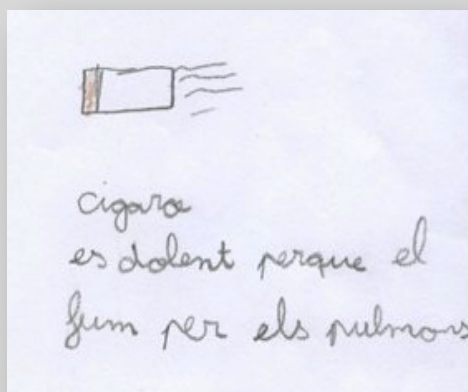 cigaro
es dolent perque el
fum per els pulmons